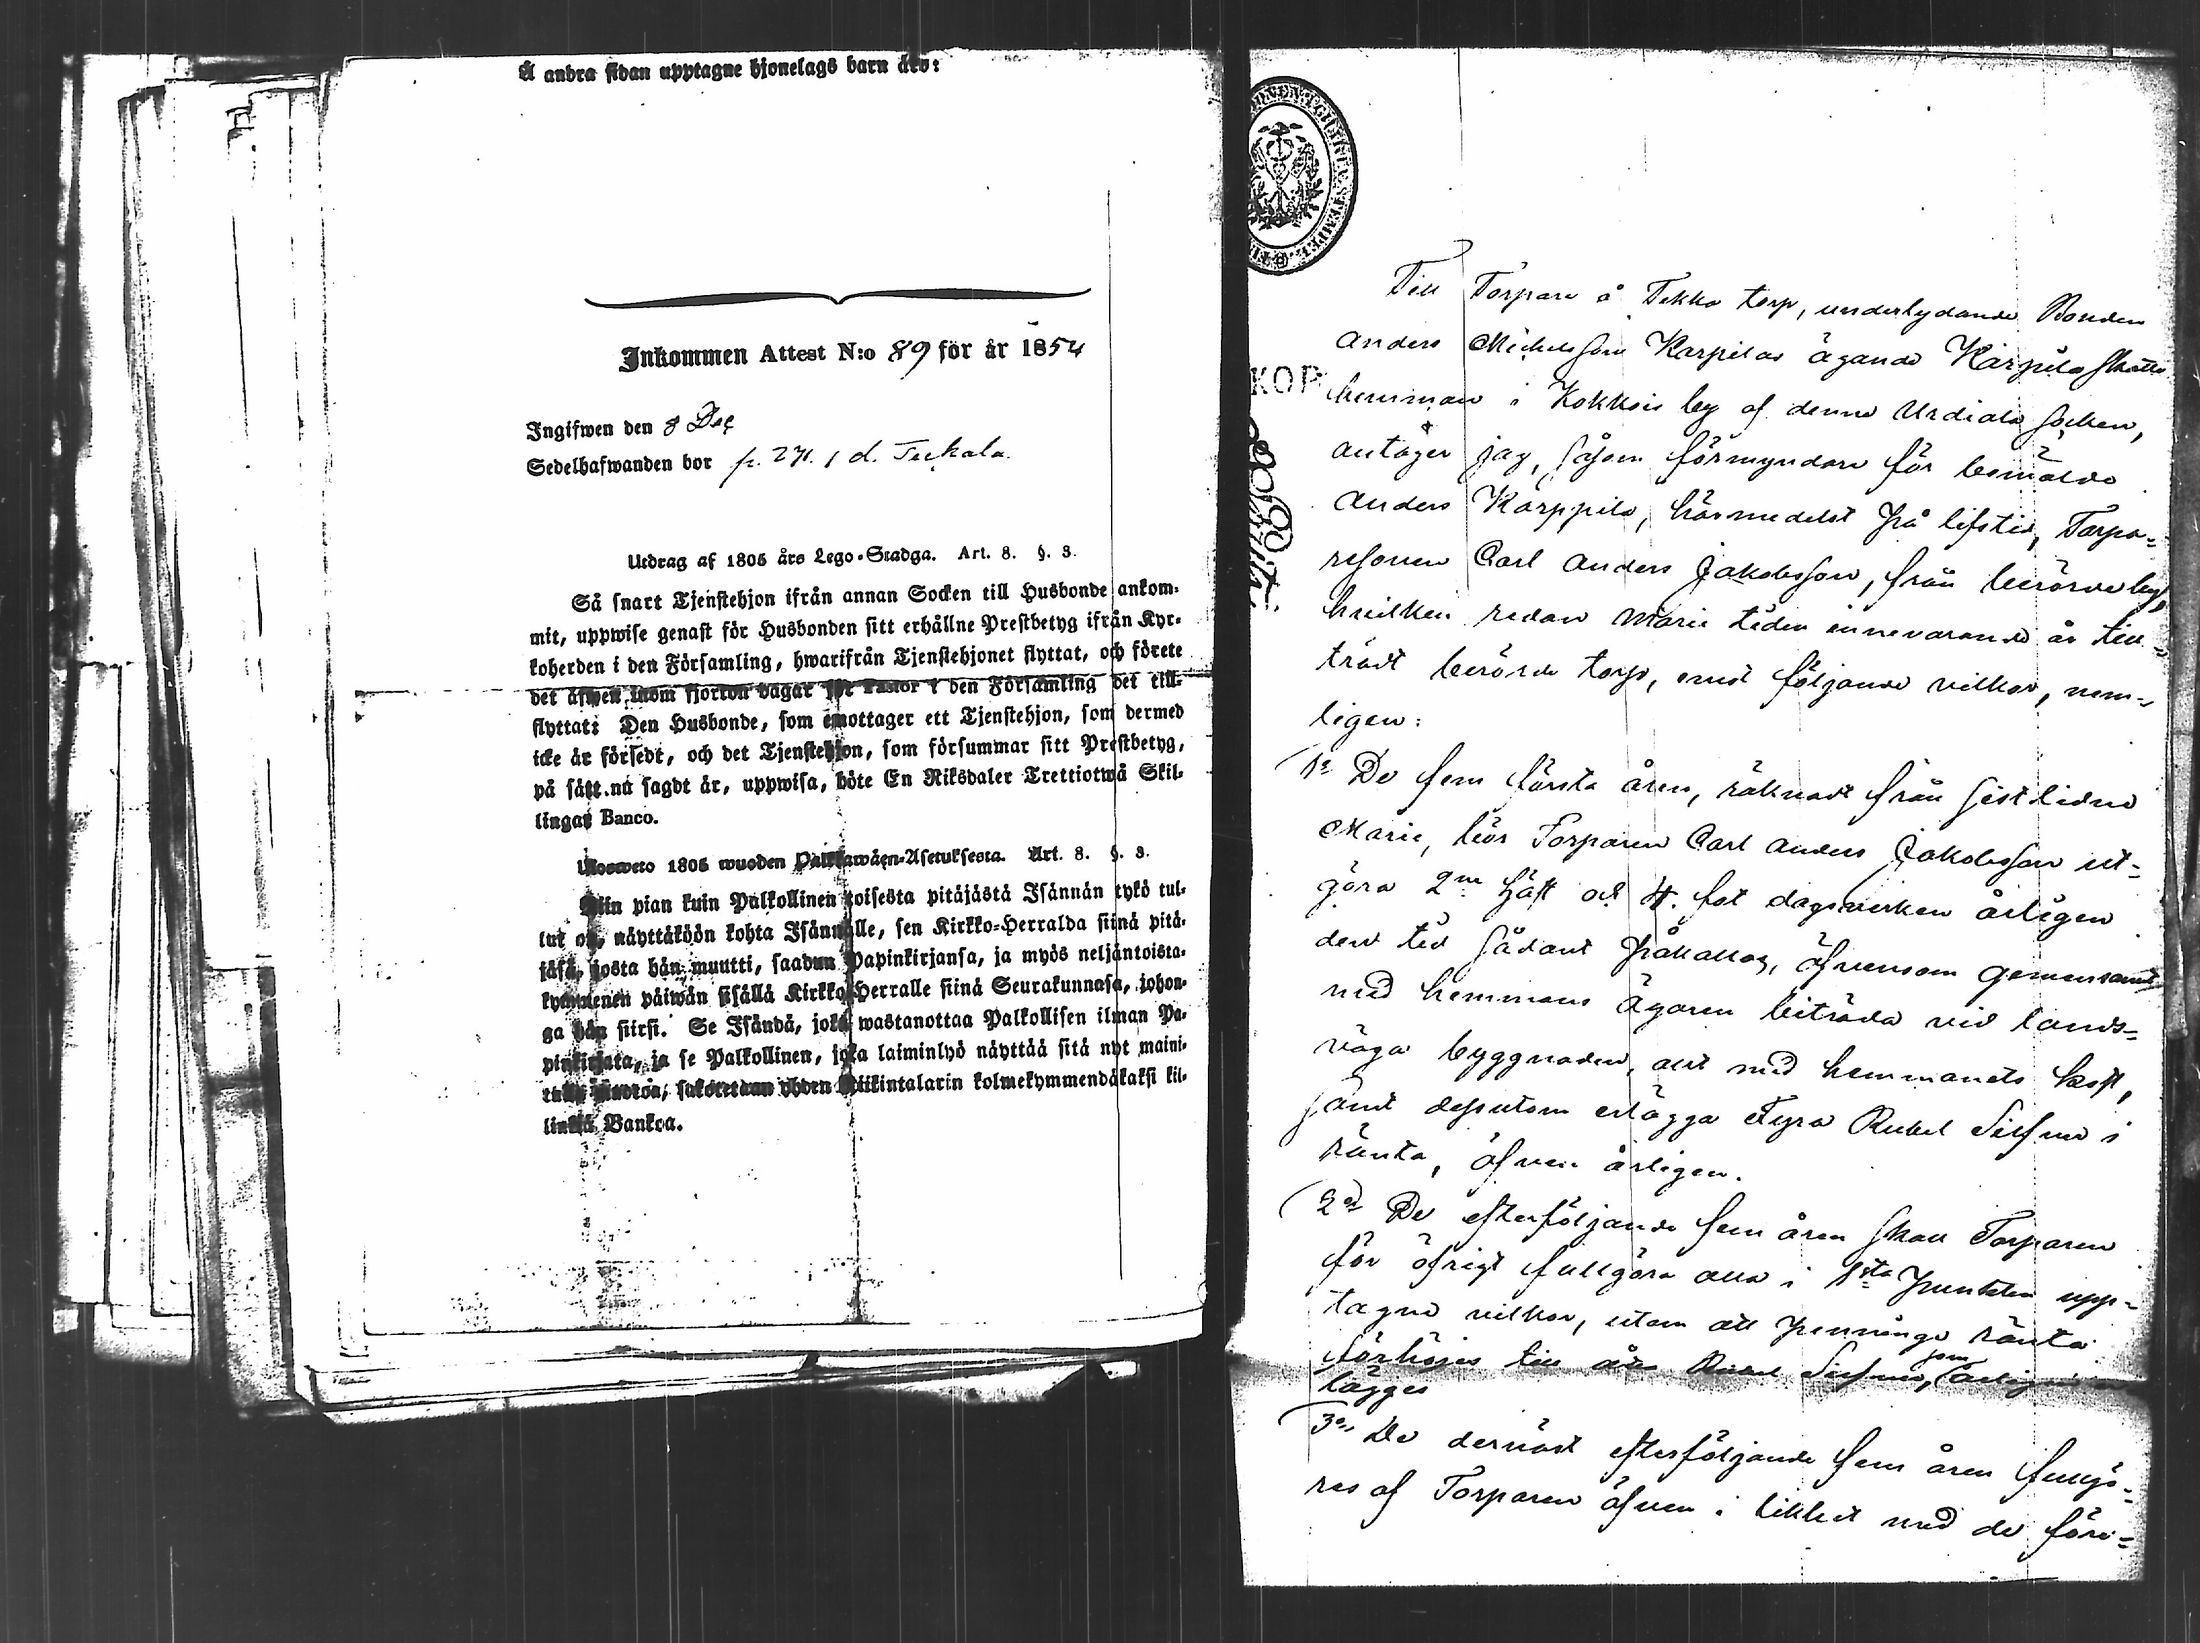 Å andra sidan upptagne hjonelags barn äro:
Inkommen Attest N:o 89 för år 1854
Ingifwen den 8 Dec
Sedelhafwanden bor p. 271. d. Tuhala.
Utdrag af 1805 års Lego-Stadga. Art. 8. §. 3.
Så snart Tjenstehjon ifrån annan Socken till Husbonde ankom-
mit, uppwise genast för Husbonden sitt erhållne Prestbetyg ifrån Kyr-
koherden i den Församling, hwarifrån Tjenstehjonet flyttat, och förete
det äfwen inom fjorton dagar för Pastor i den Församling det till-
flyttat: Den Husbonde, som emottager ett Tjenstehjon, som dermed
icke är försedt, och det Tjenstehjon, som försummar sitt Prestbetyg,
på sätt nu sagdt är, uppwisa, böte En Riksdaler Trettiotwå Skil-
lingar Banco.
Ulosweto 1805 wuoden Palkkawäen-Asetuksesta. Art. 8. §. 3.
Niin pian kuin Palkollinen toisesta pitäjästä Isännän tykö tul-
lut on, näyttäköön kohta Isännälle, sen Kirkko-Herralda siinä pitä-
jäsä, josta hän muutti, saadun Papinkirjansa, ja myös neljäntoista-
kymmenen päiwän sisällä Kirkko-Herralle siinä Seurakunnasa, johon-
ga hän siirsi. Se Isändä, joka wastanottaa Palkollisen ilman Pa-
pinkirjata, ja se Palkollinen, joka laiminlyö näyttää sitä nyt maini-
tulla muotoa, sakoitetaan yhden Riikintalarin kolmekymmendäkaksi kil-
lingiä Bankoa.
KOP
Till Torpare å Tekko torp, underlydande Bonden
Anders Michelsson Karpilas ägande Kärpilä Skatte
hemman i Kokkois by af denne Urdiala socken,
antager jag, såsom förmyndare för bemälde
Anders Kärppilä, härmedelst på lifstid, Torpa-
resonen Carl Anders Jakobsson, från berörde by,
hvilken redan Marie tiden innevarande år till-
trädt berörde torp, emot följande vilkor, nem-
ligen:
1o De fem första åren, räknadt från sistlidne
Marie, bör Torparen Carl Anders Jakobsson ut-
göra 2ne häst och 4. fot dagsverken årligen
den tid sådant påkallas, äfvensom gemensamt
med hemmans ägaren biträda vid lands-
vägs byggnaden, allt med hemmanets kost,
samt dessutom erlägga Fyra Rubel Silfver i
ränta, äfven årligen.
2o De efterföljande fem åren skall Torparen
för öfrigt fullgöra alla i 1sta punkten upp-
tagne vilkor, utom att pennings ränta
förhöjes till Rubel Silfver, som årligen
lägges
3o De dernäst efterföljande fem åren fullgö-
res af Torparen äfven i likhet med de före-